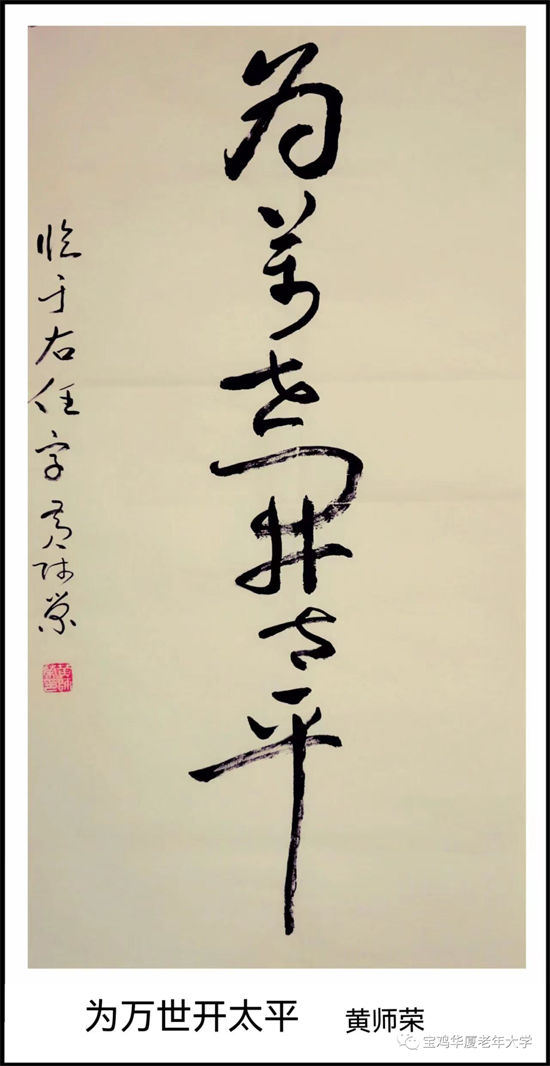 为万世开太平
临于右任字 黄师荣
为万世开太平 黄师荣
宝鸡华厦老年大学